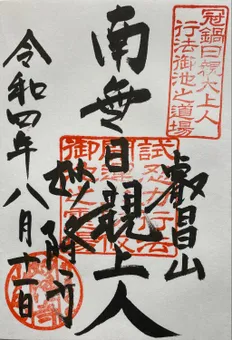 冠鍋日親大上人
行法御池之道場
叡昌山
南無日親上人
試忍力行法
妙隆寺
令和四年八月十一日